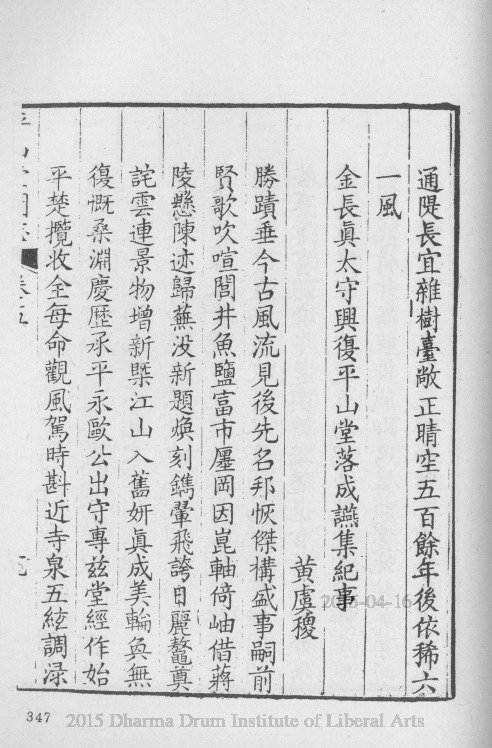 通隄長宜雜樹臺敞正晴空五百餘年後依稀六
一風
金長眞太守興復平山堂落成讌集紀事
黃虞稷
勝蹟垂今古風流見後先名邦恢傑構盛事嗣前
賢歌吹喧閭井魚鹽富市廛岡因崑軸倚岫借蔣
陵懸陳迹歸蕪没新題煥刻鐫翬飛誇日麗鼇奠
詫雲連景物增新槩江山入舊妍眞成美輪奐無
復慨桑淵慶歷承平永歐公出守專兹堂經作始
平楚攬收全毋命觀風駕時斟近寺泉五絃調渌
卷五
347
2015-04-16
2015 Dharma Drum Institute of Liberal Arts